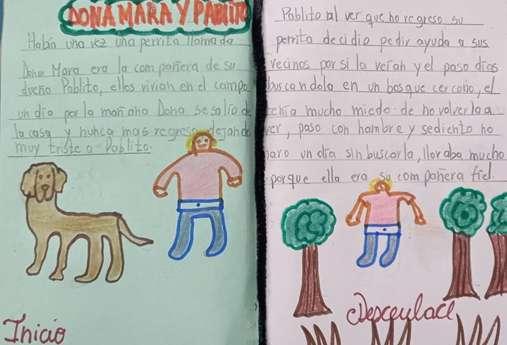 DONA MARA Y PABLITO
Había una vez una perrita llamada
Dona Mara era la compañera de su
dueño Pablito, ellos vivian en el campo
un dia por la mañana Dona se salio de
la casa y nunca mas regreso dejando
muy triste a Pablito.
Inicio
Pablito al ver que no regreso su
perrita decidio pedir ayuda a sus
vecinos por si la veían y el paso dias
buscandola en un bosque cercano, el
tenia mucho miedo de no volverla a
ver, paso con hambre y sediento no
paro un dia sin buscarla, lloraba mucho
porque ella era su compañera fiel
Desenlace